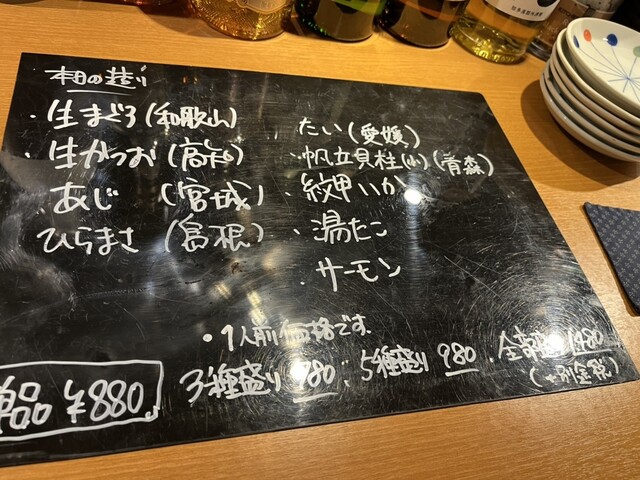 本日の造り
・生まぐろ(和歌山)
・生かつお(高知)
・あじ (宮城)
ひらまさ (島根)
・たい(愛媛)
・帆立貝柱(小)(青森)
・紋甲いか
・湯たこ
・サーモン
・1人前価格です。
単品 ¥880
3種盛り 780
5種盛り 980
・全部盛り 1480
(+別金税)